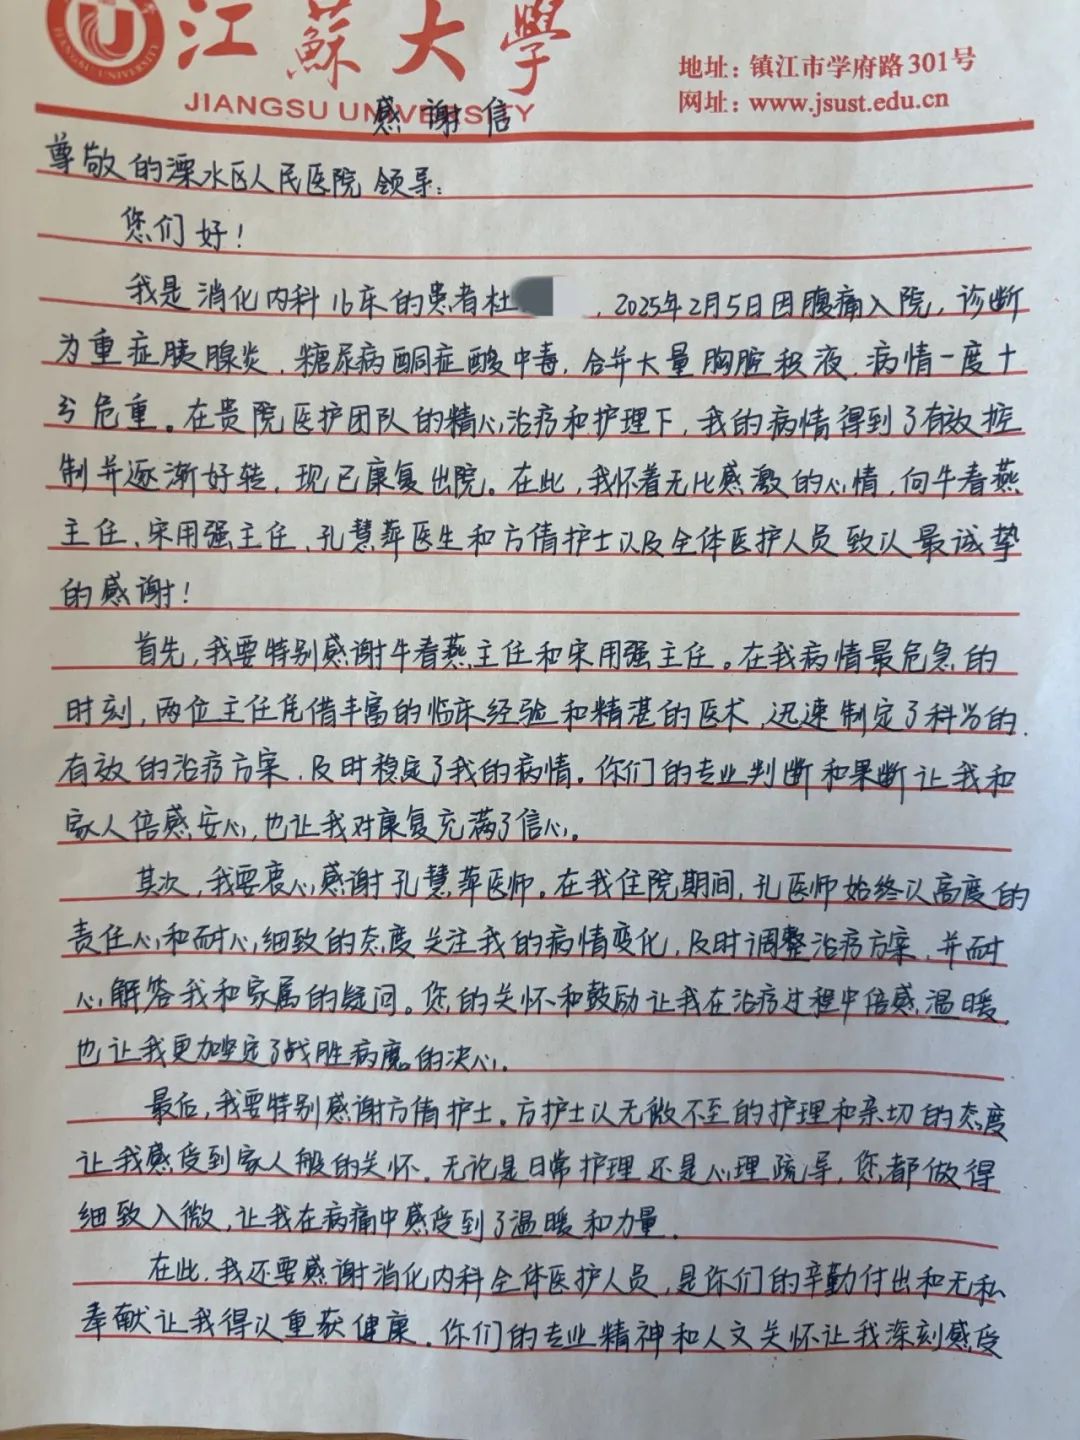 江蘇大學
JIANGSU UNIVERSITY
地址：镇江市学府路301号
网址：www.jsust.edu.cn
感谢信
尊敬的溧水区人民医院领导：
您们好！
我是消化内科16床的患者杜，2025年2月5日因腹痛入院，诊断
为重症胰腺炎，糖尿病酮症酸中毒，合并大量胸腔积液，病情一度十
分危重。在贵院医护团队的精心治疗和护理下，我的病情得到了有效控
制并逐渐好转，现已康复出院。在此，我怀着无比感激的心情，向牛春燕
主任、宋用强主任、孔慧萍医生和方倩护士以及全体医护人员致以最诚挚
的感谢！
首先，我要特别感谢牛春燕主任和宋用强主任。在我病情最危急的
时刻，两位主任凭借丰富的临床经验和精湛的医术，迅速制定了科学的、
有效的治疗方案，及时稳定了我的病情。你们的专业判断和果断让我和
家人倍感安心，也让我对康复充满了信心。
其次，我要衷心感谢孔慧萍医师。在我住院期间，孔医师始终以高度的
责任心和耐心细致的态度关注我的病情变化，及时调整治疗方案，并耐
心解答我和家属的疑问。您的关怀和鼓励让我在治疗过程中倍感温暖，
也让我更加坚定了战胜病魔的决心。
最后，我要特别感谢方倩护士。方护士以无微不至的护理和亲切的态度
让我感受到家人般的关怀。无论是日常护理还是心理疏导，您都做得
细致入微，让我在病痛中感受到了温暖和力量。
在此，我还要感谢消化内科全体医护人员，是你们的辛勤付出和无私
奉献让我得以重获健康。你们的专业精神和人文关怀让我深刻感受